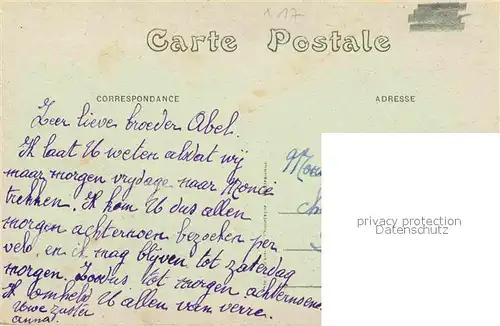 1 17
Carte Postale
CORRESPONDANCE
ADRESSE
Zeer lieve broeder Abel.
Ik laat U weten aldat wij
naar morgen vrydage naar
trekken. Ik kom U dus allen
morgen achternoen bezoeken per
velo en ik mag blijven tot zaterdag
morgen. Zoodus tot morgen achternoene
Ik omhels U allen van verre.
Uwe zuster
anna.
privacy protection
Datenschutz